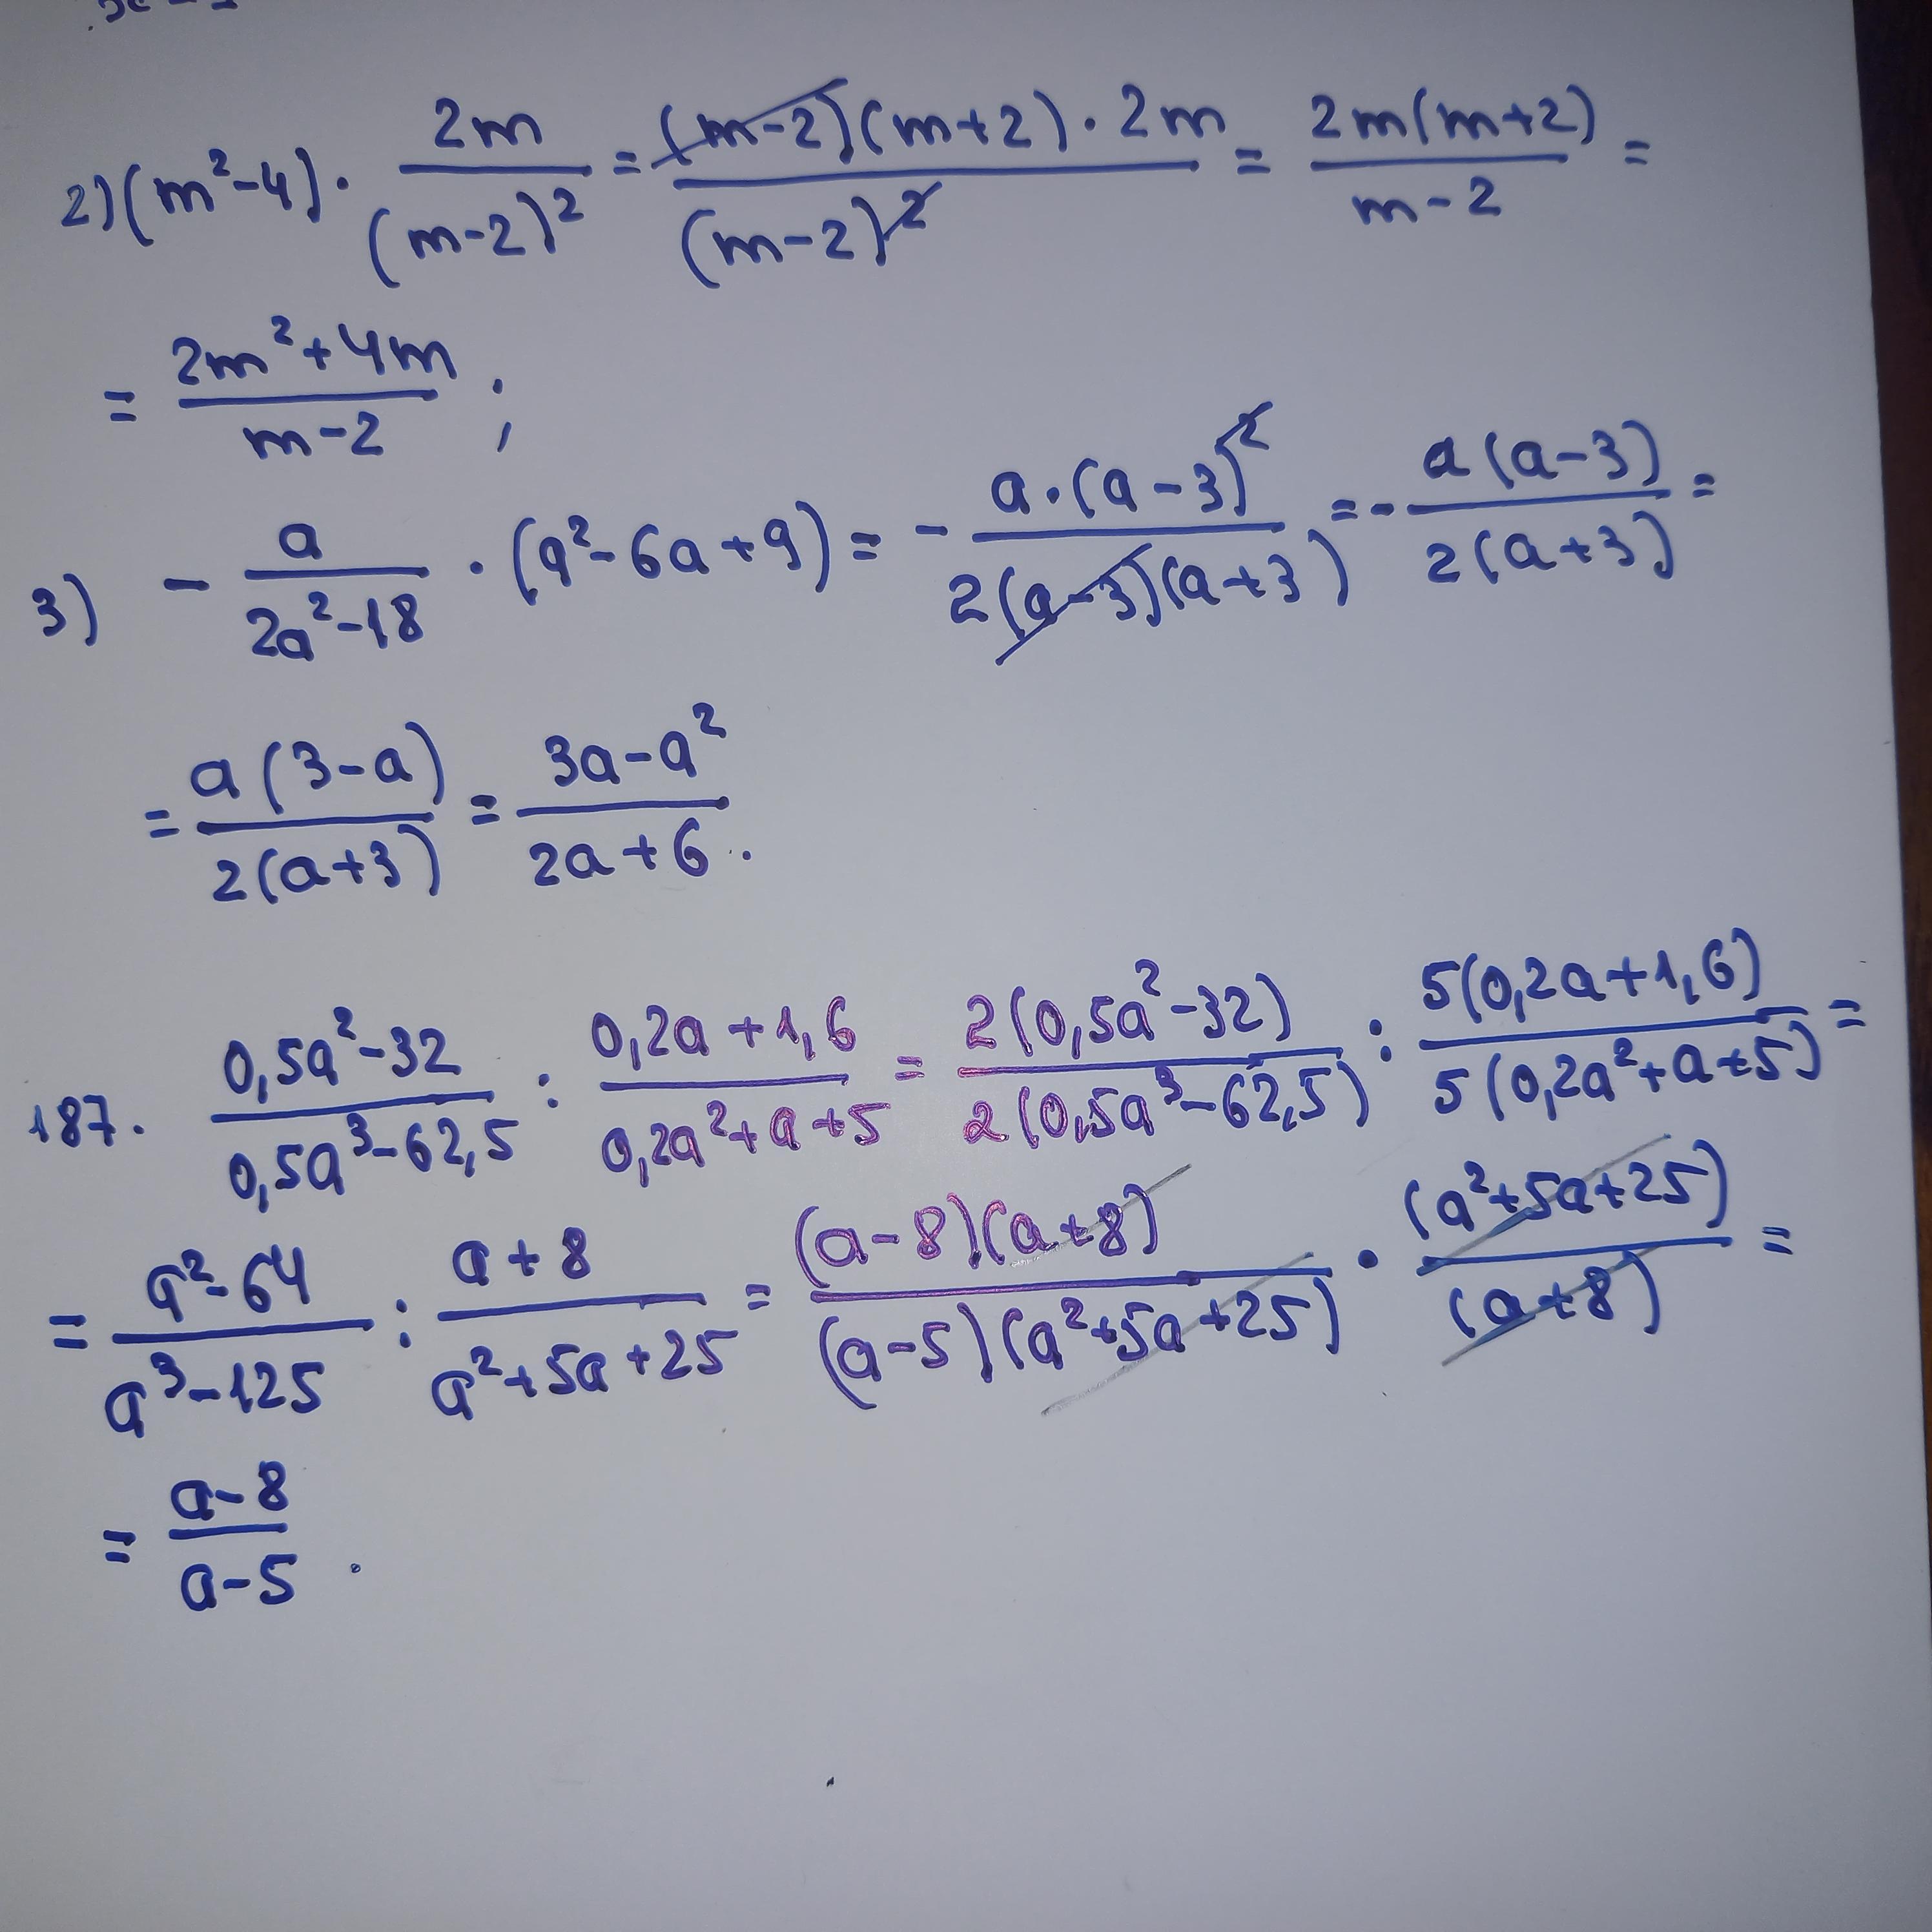 2) (m²-4) · 2m/(m-2)² = (m-2)(m+2)·2m/(m-2)² = 2m(m+2)/m-2 =
= 2m²+4m/m-2 ;
3) - a/2a²-18 · (a²-6a+9) = - a·(a-3)²/2(a-3)(a+3) = - a(a-3)/2(a+3) =
= a(3-a)/2(a+3) = 3a-a²/2a+6 .
187. 0,5a²-32/0,5a³-62,5 : 0,2a+1,6/0,2a²+a+5 = 2(0,5a²-32)/2(0,5a³-62,5) : 5(0,2a+1,6)/5(0,2a²+a+5) =
= a²-64/a³-125 : a+8/a²+5a+25 = (a-8)(a+8)/(a-5)(a²+5a+25) · (a²+5a+25)/(a+8) =
= a-8/a-5 .